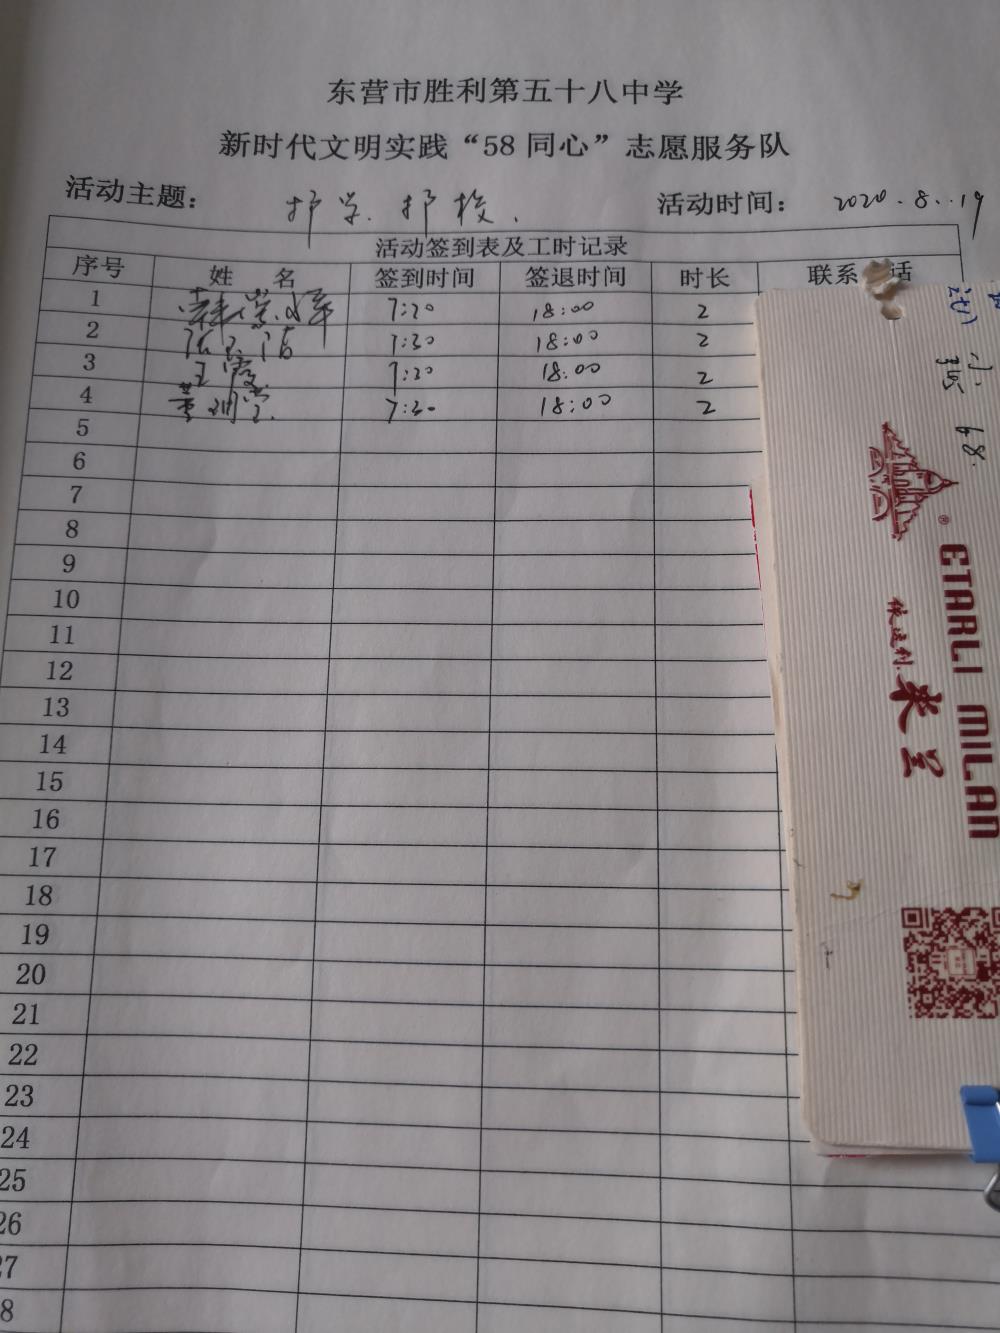 东营市胜利第五十八中学
新时代文明实践“58 同心”志愿服务队
活动主题： 护学.护校. 活动时间： 2020.8.19
活动签到表及工时记录
序号 姓 名 签到时间 签退时间 时长 联系 话
1 7:30 18:00 2
2 7:30 18:00 2
3 王霞 7:30 18:00 2
4 7:30 18:00 2
5
6
7
8
9
10
11
12
13
14
15
16
17
18
19
20
21
22
23
24
25
26
27
8
小 68.
®
CTARLI MILAN
米兰